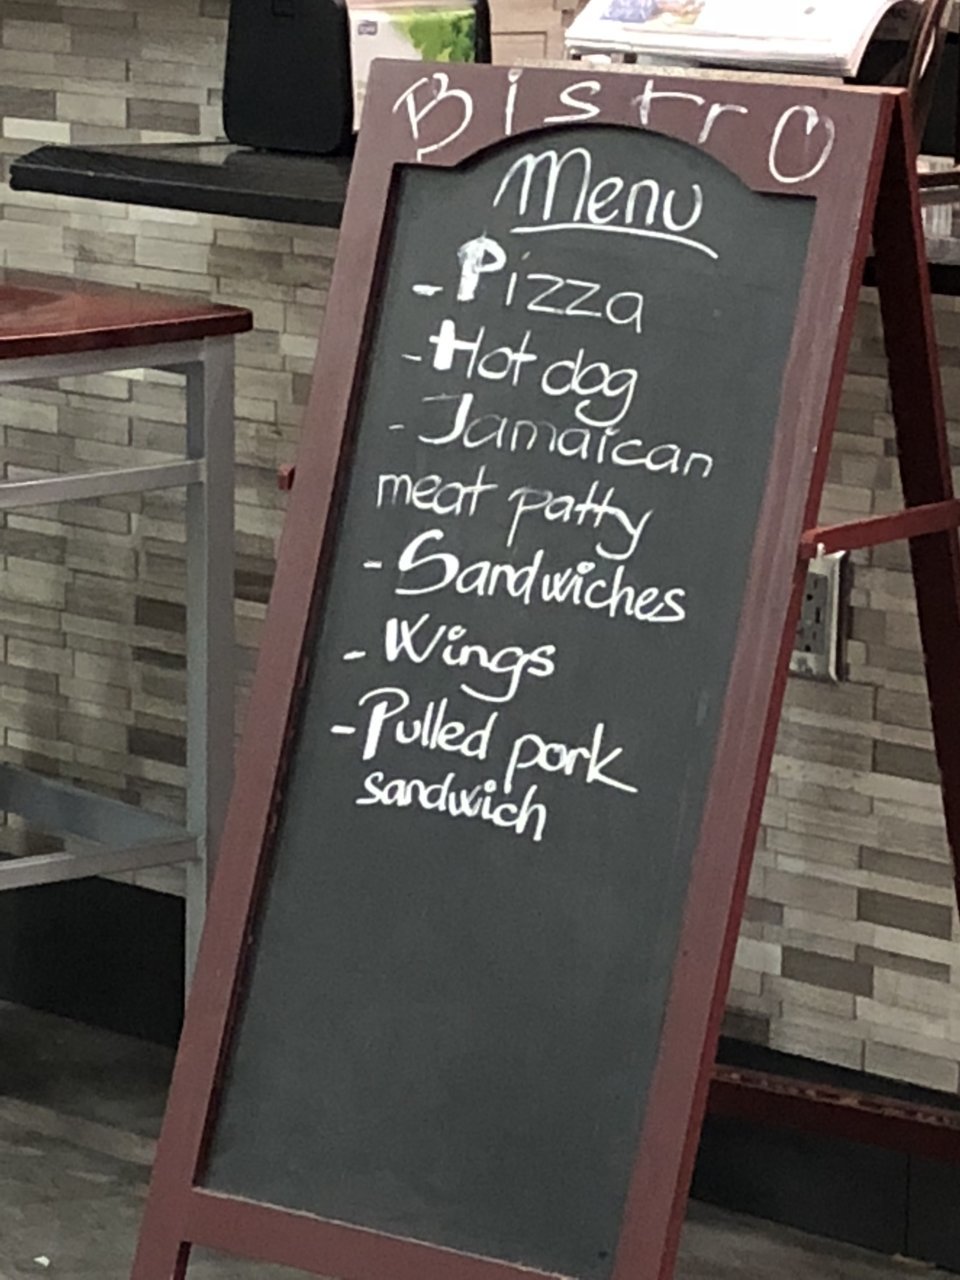 Bistro
Menu
- Pizza
- Hot dog
- Jamaican
meat patty
- Sandwiches
- Wings
- Pulled pork
sandwich